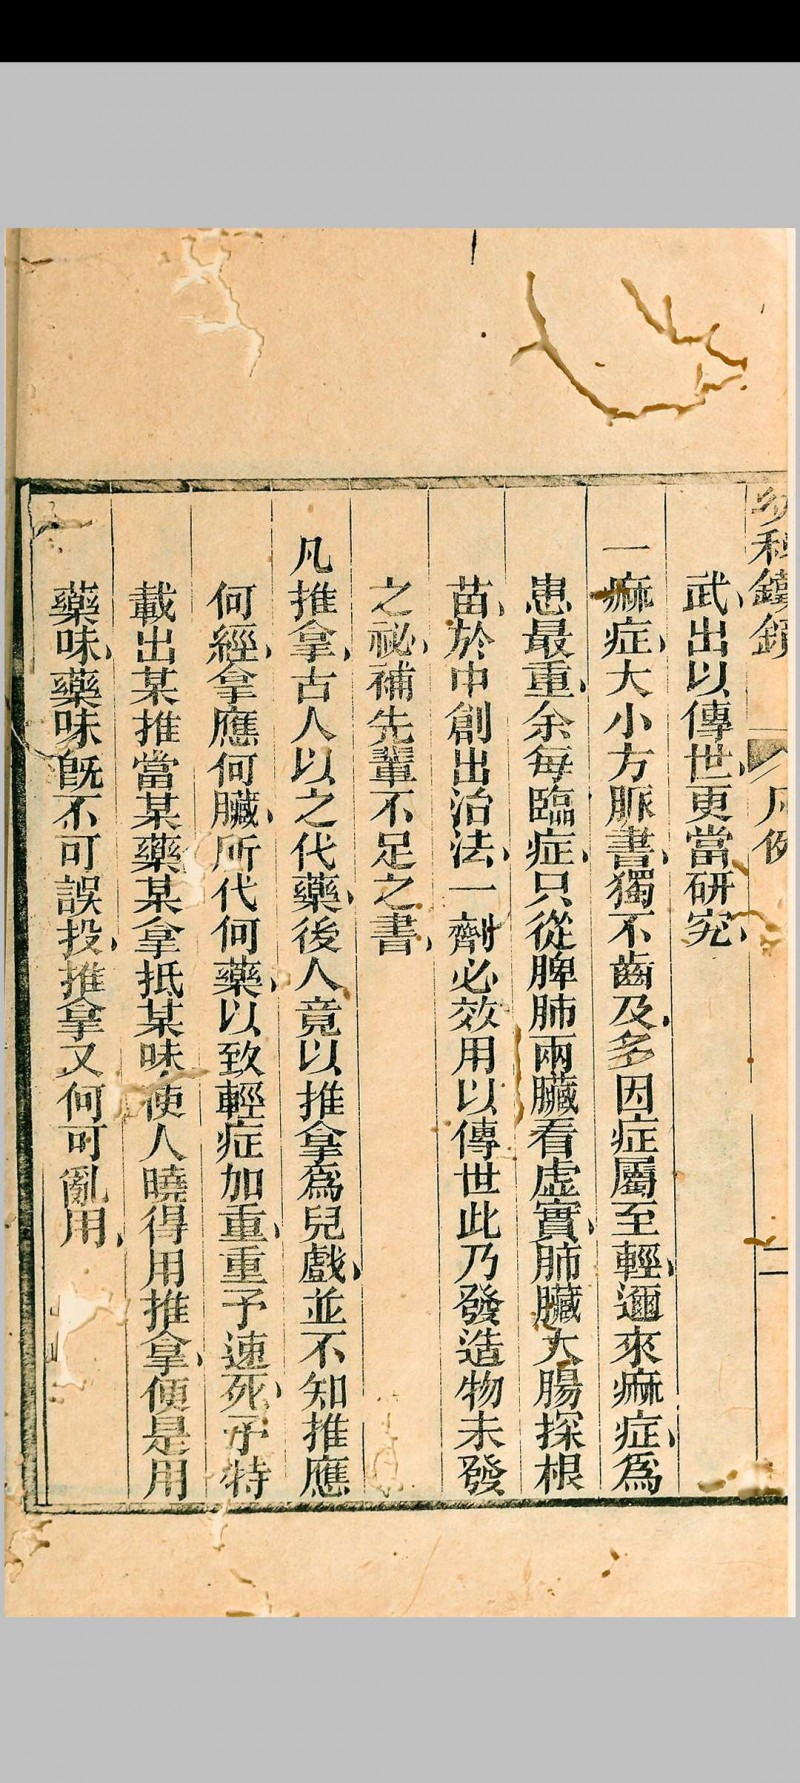 幼科鐵鏡
凡例
二
武、出以傳世、更當研究、
一痲症、大小方脈書、獨不齒及、多因症屬至輕、邇來痲症、爲
患最重、余每臨症、只從脾肺兩臟看虛實、肺臟大腸探根
苗、於中創出治法、一劑必效、用以傳世、此乃發造物未發
之祕、補先輩不足之書、
凡推拿、古人以之代藥、後人竟以推拿爲兒戲、並不知推應
何經、拿應何臟、所代何藥、以致輕症加重、重予速死、予特
載出某推當某藥、某拿抵某味、使人曉得用推拿、便是用
藥味、藥味旣不可誤投、推拿又何可亂用、